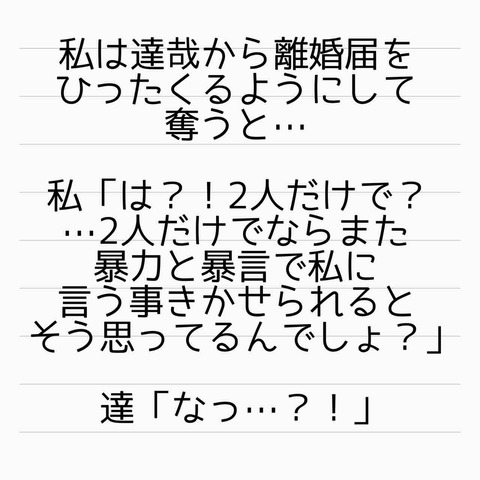 私は達哉から離婚届を
ひったくるようにして
奪うと…
私「は？！2人だけで？
…2人だけでならまた
暴力と暴言で私に
言う事きかせられると
そう思ってるんでしょ？」
達「なっ…？！」